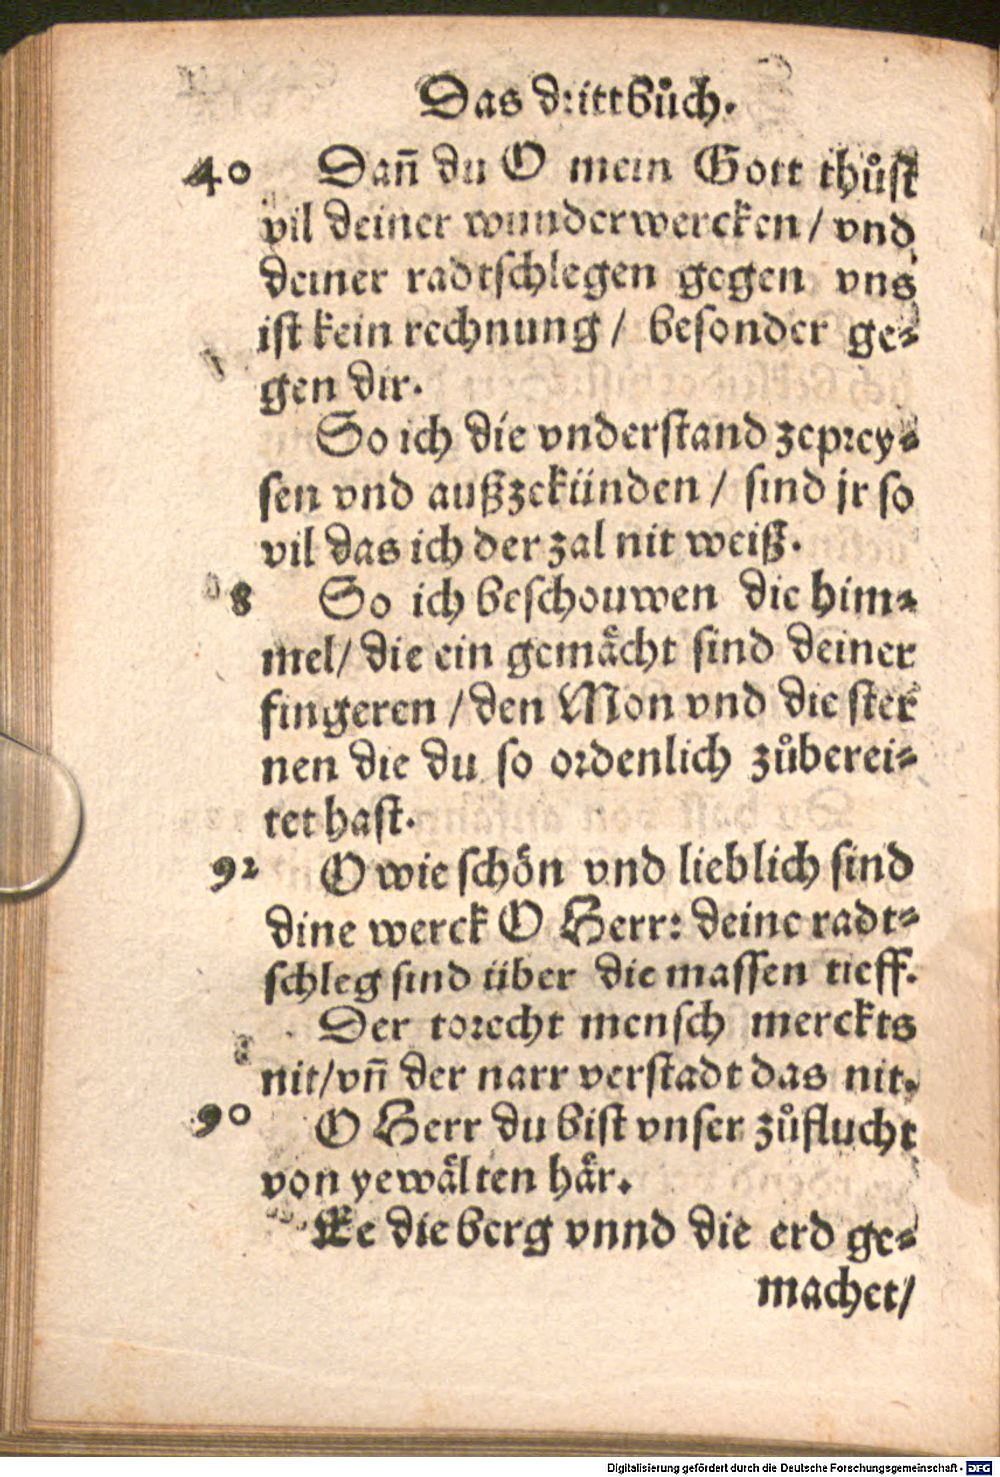 Das drittbůch.
40 Dañ du O mein Gott thůst
vil deiner wunderwercken / vnd
deiner radtschlegen gegen vns
ist kein rechnung / besonder ge-
gen dir.
So ich die vnderstand zeprey-
sen vnd außzekünden / sind jr so
vil das ich der zal nit weiß.
8 So ich beschouwen die him-
mel / die ein gemächt sind deiner
fingeren / den Mon vnd die ster
nen die du so ordenlich zůberei-
tet hast.
92 O wie schön vnd lieblich sind
dine werck O Herr: deine radt-
schleg sind über die massen tieff.
Der torecht mensch merckts
nit / vñ der narr verstadt das nit.
90 O Herr du bist vnser zůflucht
von yewälten här.
Ee die berg vnnd die erd ge-
machet /
Digitalisierung gefördert durch die Deutsche Forschungsgemeinschaft - DFG